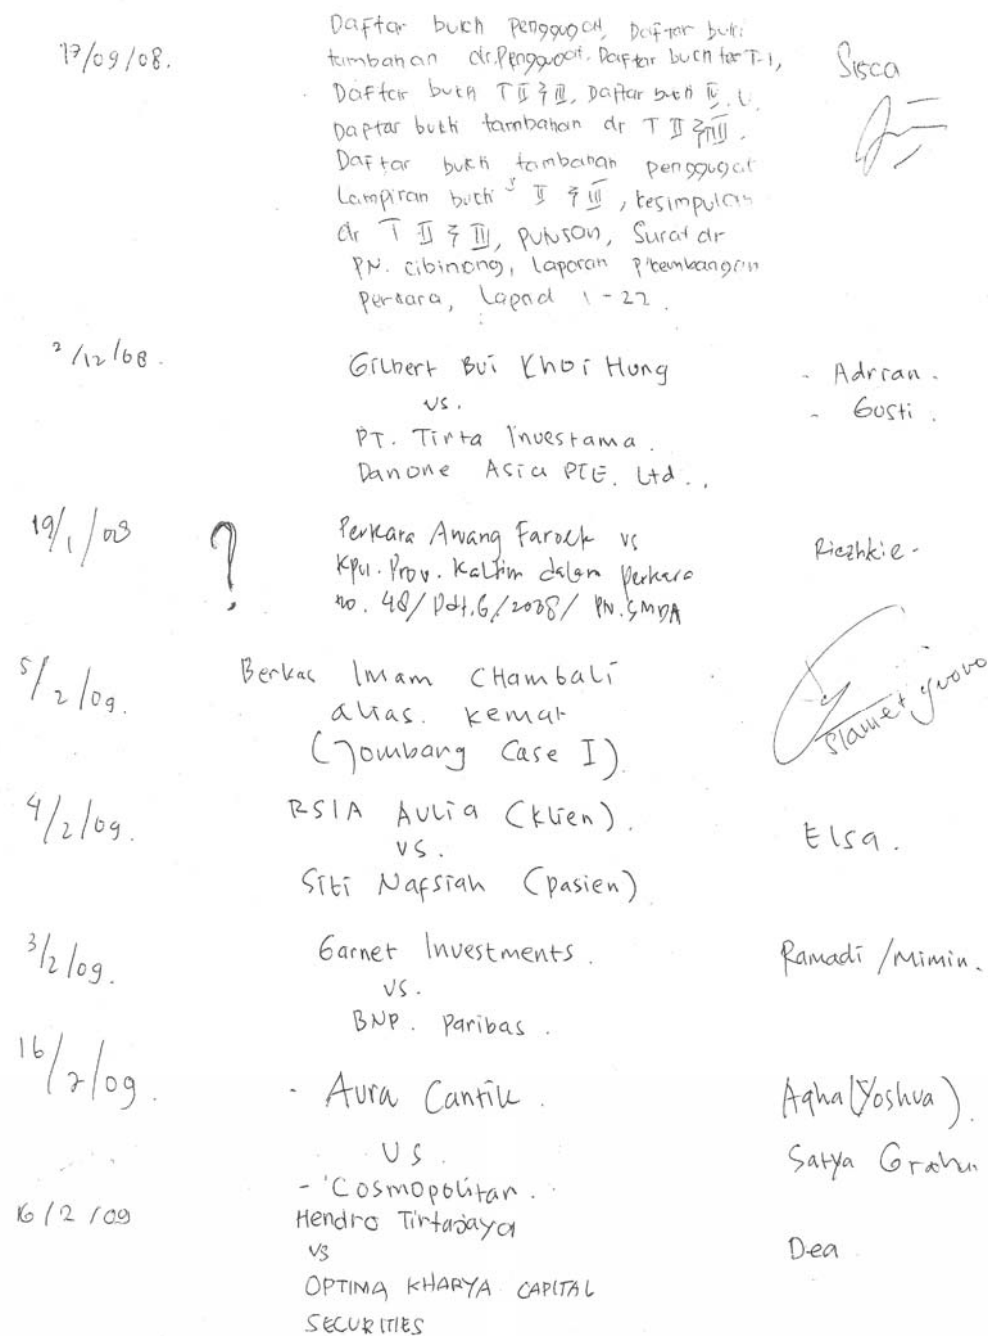 17/09/08.
Daftar bukti Penggugat, Daftar bukti
tambahan dr.Penggugat. Daftar bukti tar T-1,
Daftar bukti T II & III, Daftar bukti
Daptar bukti tambahan dr T II & III.
Daftar bukti tambahan penggugat
Lampiran bukti II & III, kesimpulan
dr T II & III, putusan, Surat dr
PN. Cibinong, Laporan p'kembangan
perkara, Lapad 1 - 22.
Sisca
2/12/08.
Gilbert Bui Khoi Hung
vs.
PT. Tirta Investama.
Danone Asia PTE. Ltd..
- Adrian.
- Gusti.
19/1/09
?
Perkara Awang Faroek vs
Kpu. Prov. Kaltim dalam perkara
no. 48/Pdt.G/2008/ PN.SMDA
Riezhkie-
5/2/09.
Berkas Imam CHambali
alias. Kemat
(Jombang Case I)
Slamet Yuono
4/2/09.
RSIA Aulia (klien).
vs.
Siti Nafsiah (pasien)
Elsa.
3/2/09.
Garnet Investments.
vs.
BNP. Paribas.
Ramadi /Mimin.
16/2/09.
- Aura Cantik.
vs.
- Cosmopolitan.
Agha(Yoshua)
Satya Graha
16/2/09
Hendro Tirtajaya
vs
OPTIMA KHARYA CAPITAL
SECURITIES
Dea